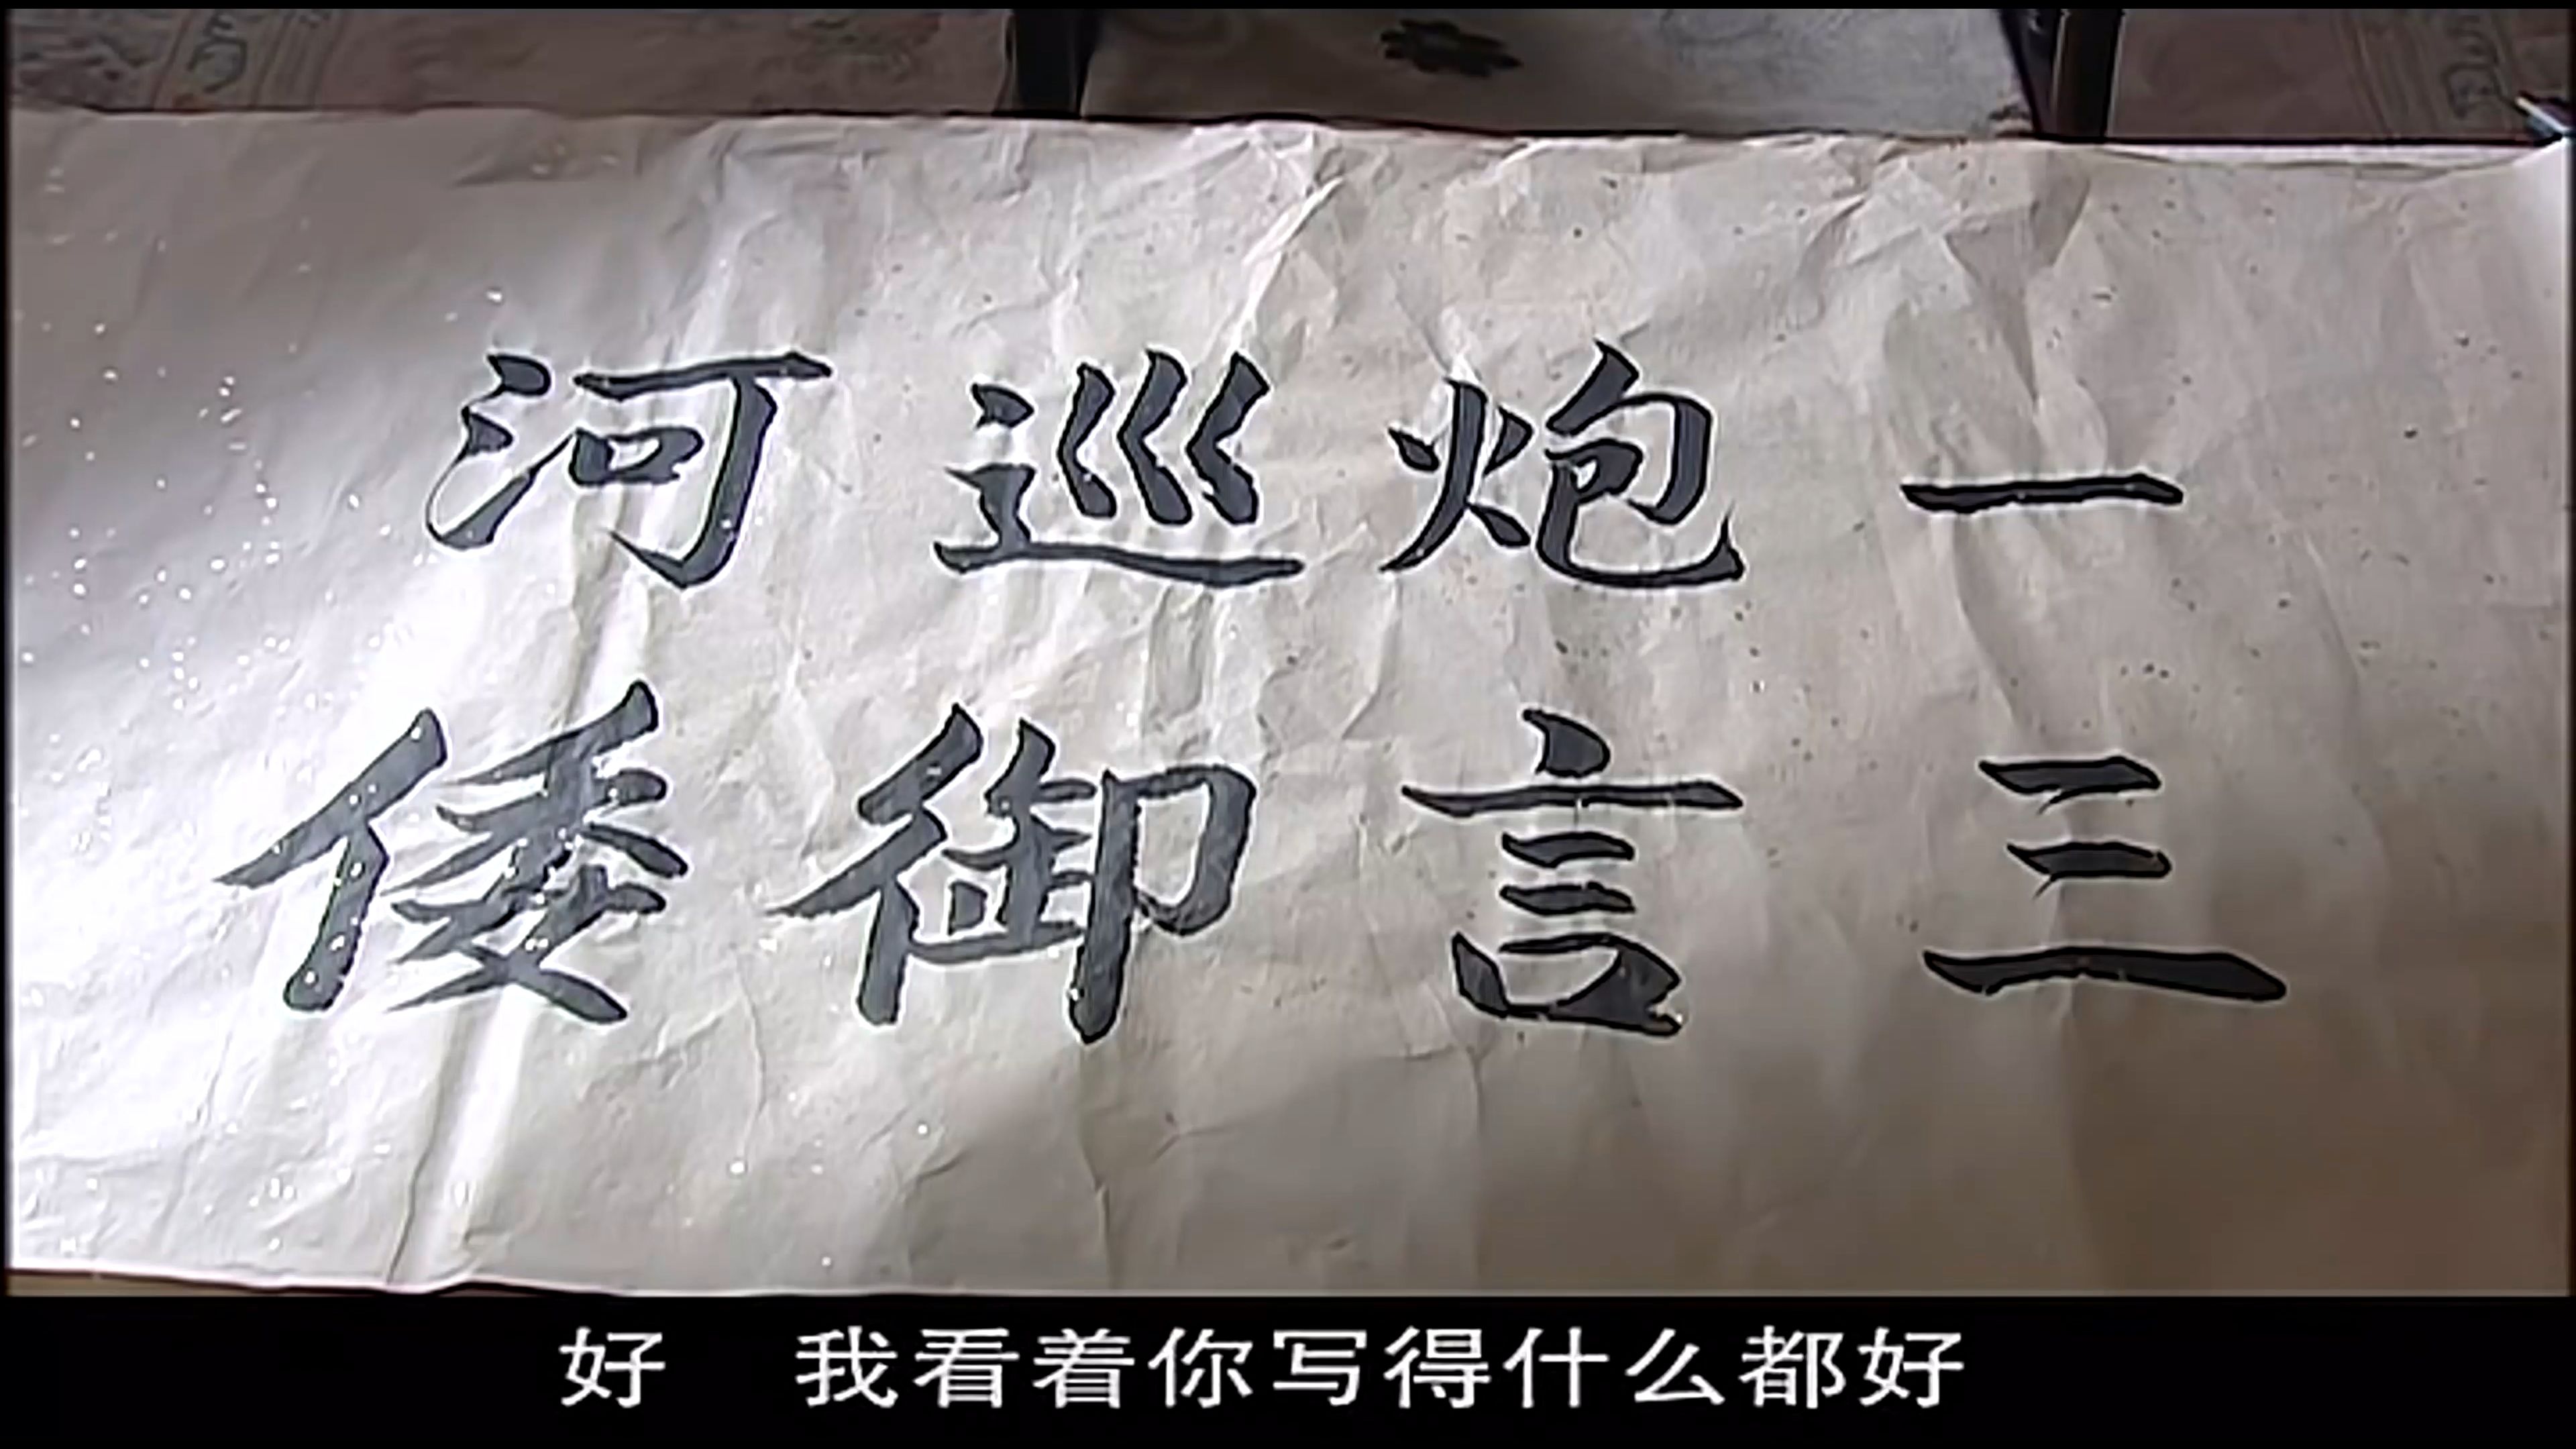 一炮巡河
三言御倭
好 我看着你写得什么都好